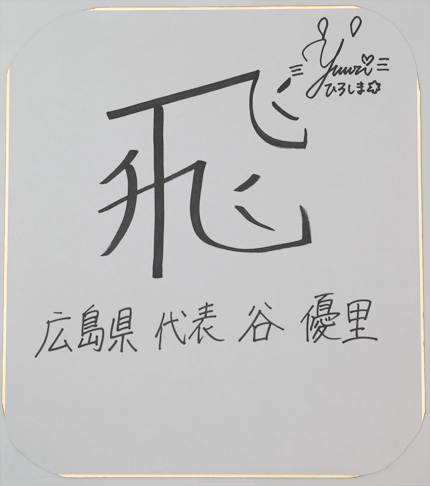 Yuuri
ひろしま
飛
広島県 代表 谷 優里